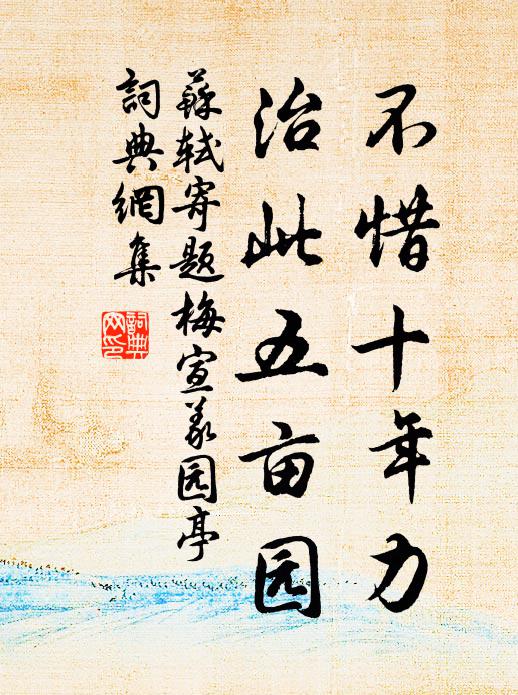 不惜十年力
治此五亩园
蘇轼寄题梅宣义园亭
詞典網集
詞典
网印